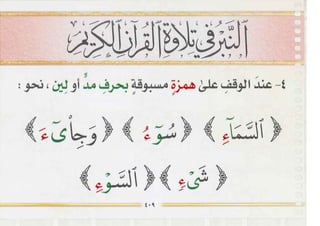 ٱلنَّبْرُ فِي تِلَاوَةِ ٱلْقُرْآنِ ٱلْكَرِيمِ
٤- عندَ الوقفِ علىٰ همزةٍ مسبوقةٍ بحرفِ مدٍّ أو لِين ، نحو :
﴿ ٱلسَّمَآءِ ﴾ ﴿ سُوٓءُ ﴾ ﴿ وَجِاْىٓءَ ﴾
﴿ شَىْءٍ ﴾ ﴿ ٱلسَّوْءِ ﴾
٤٠٩